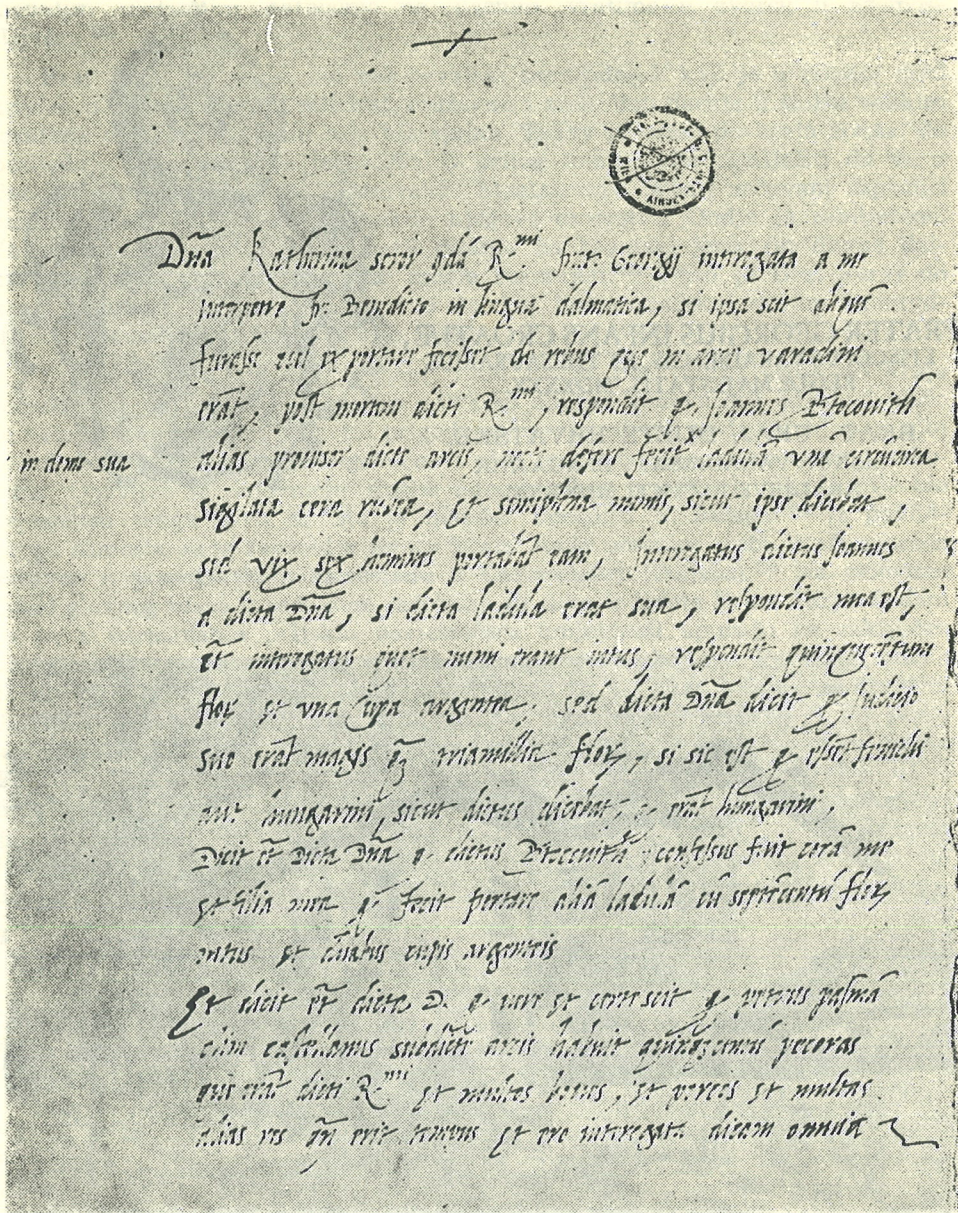 Dña Katherina soror qdā R.mi frat. Georgij interrogata a me
interprete fr. Benedicto in lingua dalmatica, si ipsa scit aliquē
furasse vel exportare fecisset de rebus que in arce varadini
erāt, post mortem dicti R.mi, respondit q. Joannes Btocovith
alias provisor dicte arcis, nocte deferre fecit x ladulā vnā circūcirca
in domo sua
sigilata cera rubea, et semiplena numis, sicut ipse dicebat,
sed vix sex homines portabāt eam, Interrogatus dictus Joannes
a dicta Dña, si dicta ladula erat sua, respondit mea est,
et interogatus quot numi erant intus, respondit quingēntum
flor et vna cupa argentea, sed dicta Dña dicit q Iudicio
suo erāt magis q̄ triamillia flor, si sic est q essēt
aut hungarini, sicut dictus dicebat, q. erāt hungarini,
Dicit ēt Dicta Dña q. dictus confessus fuit corā me
et filia mea q. fecit portare aliā ladulā cū septēcentū flor
intus et duabus cupis argenteis
Et dicit ēt dicta D. q. vere et certe scit q. petrus pasmā
olim castellanus subdicte arcis habuit pecoras
que erāt dicti R.mi et multos boves, et porcos et multas
alias res qn̄ erit tempus et ero interogata dicam omnia